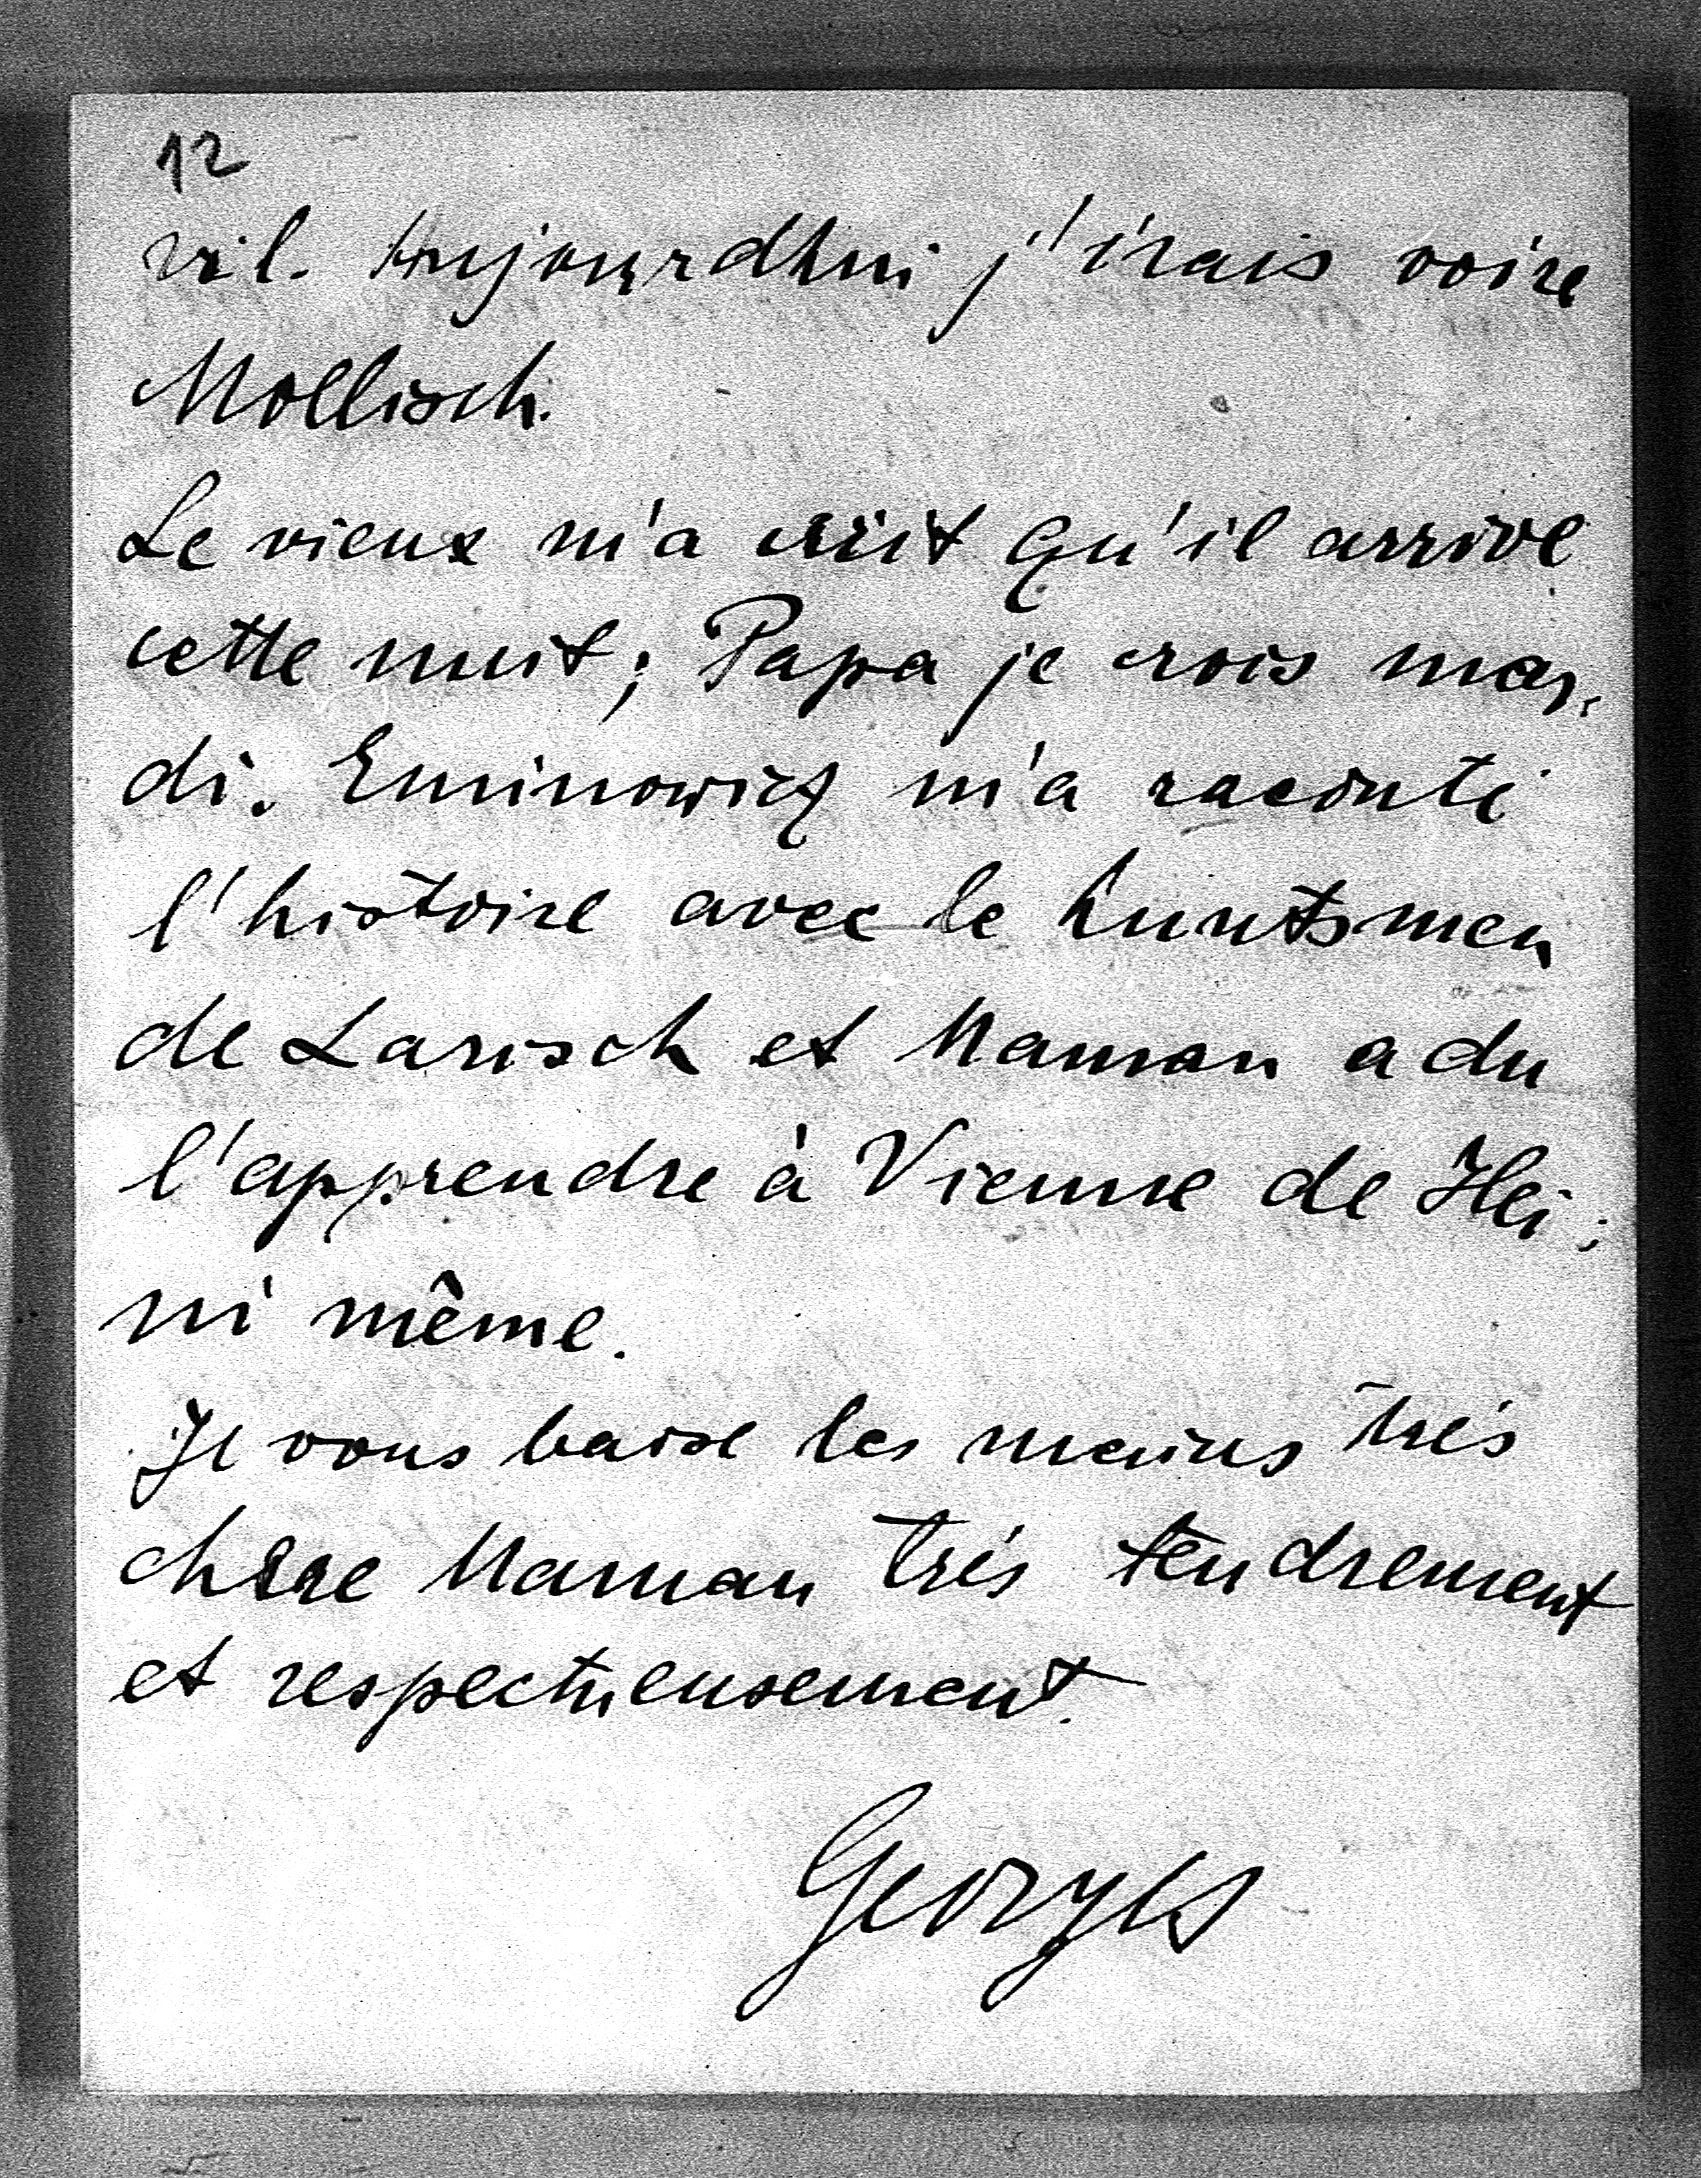 12
vil. Aujourdhui j'irais voire
Mollisch.
Le vieux m'a écrit qu'il arrive
cette nuit; Papa je crois mar-
di. Eminowicz m'a raconté
l'histoire avec le huntsmen
de Larisch et Maman a du
l'apprendre à Vienne de Hei-
ni même.
Je vous baise les mains très
chère Maman très tendrement
et respectueusement.
Georges